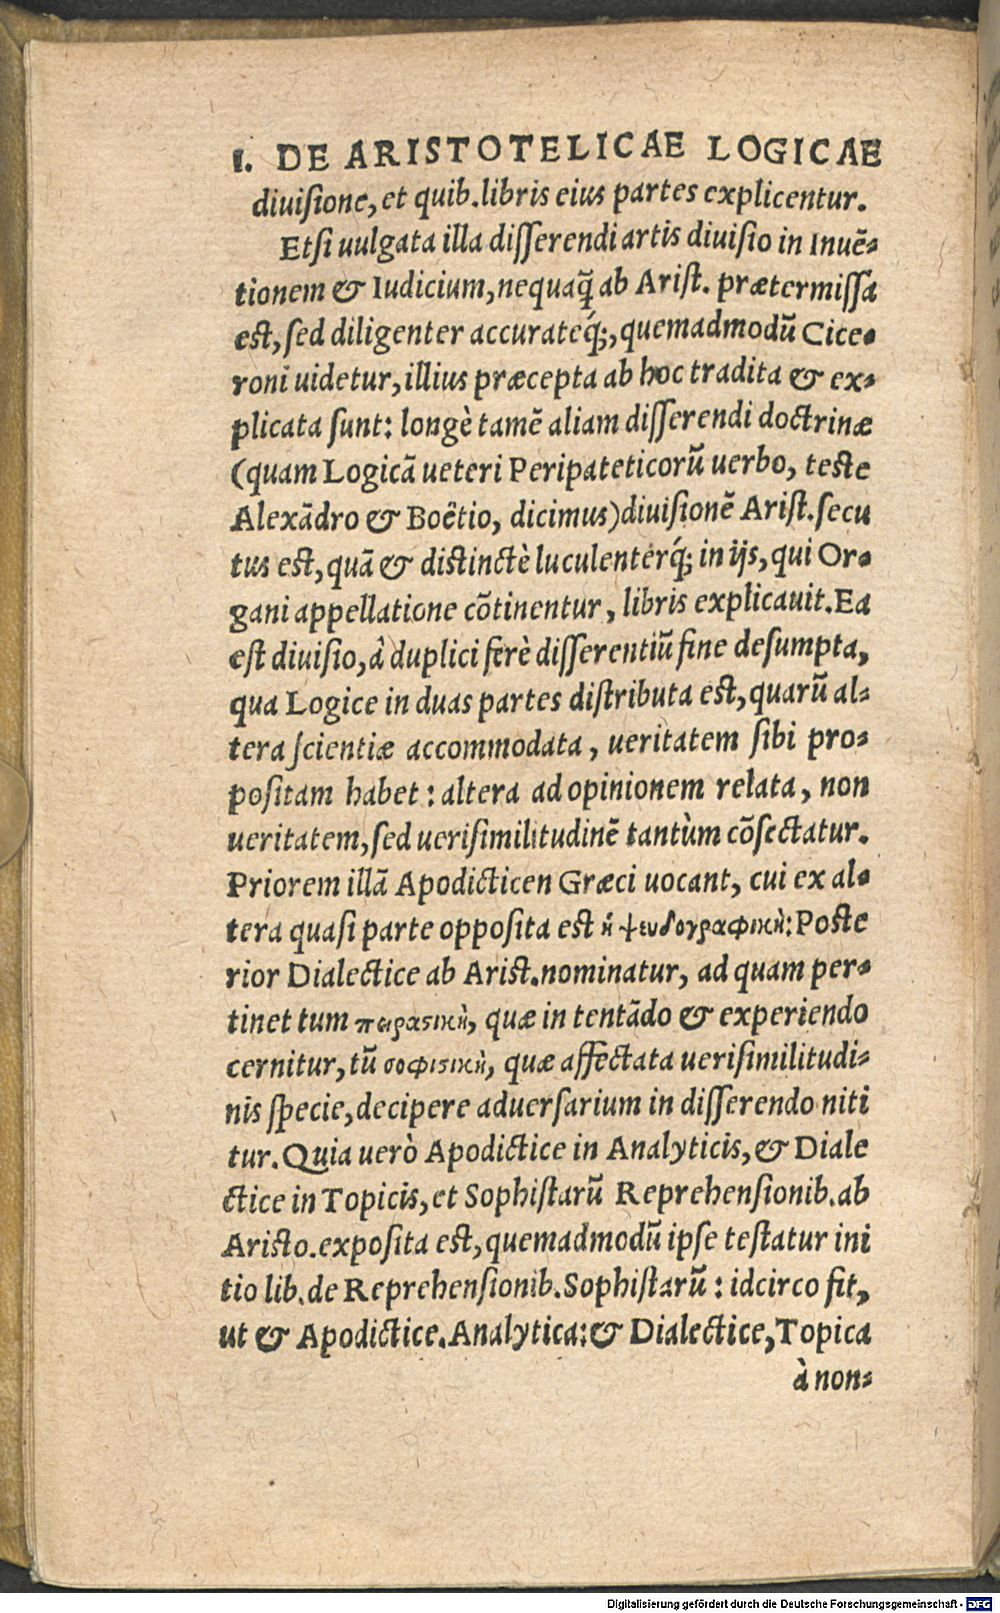 I. DE ARISTOTELICAE LOGICAE
diuiſione, et quib. libris eius partes explicentur.
Etſi uulgata illa diſſerendi artis diuiſio in Inuē-
tionem & Iudicium, nequaq̃ ab Ariſt. prætermiſſa
est, ſed diligenter accurateq́;, quemadmodũ Cice-
roni uidetur, illius præcepta ab hoc tradita & ex-
plicata ſunt: longè tamẽ aliam diſſerendi doctrinæ
(quam Logicã ueteri Peripateticorũ uerbo, teste
Alexãdro & Boëtio, dicimus) diuiſionẽ Ariſt. ſecu
tus est, quã & distinctè luculenterq́; in ijs, qui Or-
gani appellatione cõtinentur, libris explicauit. Ea
est diuiſio, à duplici ferè diſſerentiũ fine deſumpta,
qua Logice in duas partes diſtributa est, quarũ al-
tera ſcientiæ accommodata, ueritatem ſibi pro-
poſitam habet: altera ad opinionem relata, non
ueritatem, ſed ueriſimilitudinẽ tantùm cõſectatur.
Priorem illã Apodicticen Græci uocant, cui ex al-
tera quaſi parte oppoſita est ἡ ψευδογραφικὴ: Poste
rior Dialectice ab Arist. nominatur, ad quam per-
tinet tum πειραστικὴ, quæ in tentãdo & experiendo
cernitur, tũ σοφιστικὴ, quæ affectata ueriſimilitudi-
nis ſpecie, decipere aduerſarium in diſſerendo niti
tur. Quia uerò Apodictice in Analyticis, & Diale
ctice in Topicis, et Sophiſtarũ Reprehenſionib. ab
Aristo. expoſita est, quemadmodũ ipſe teſtatur ini
tio lib. de Reprehenſionib. Sophiſtarũ: idcirco fit,
ut & Apodictice. Analytica: & Dialectice, Topica
à non-
Digitalisierung gefördert durch die Deutsche Forschungsgemeinschaft - DFG